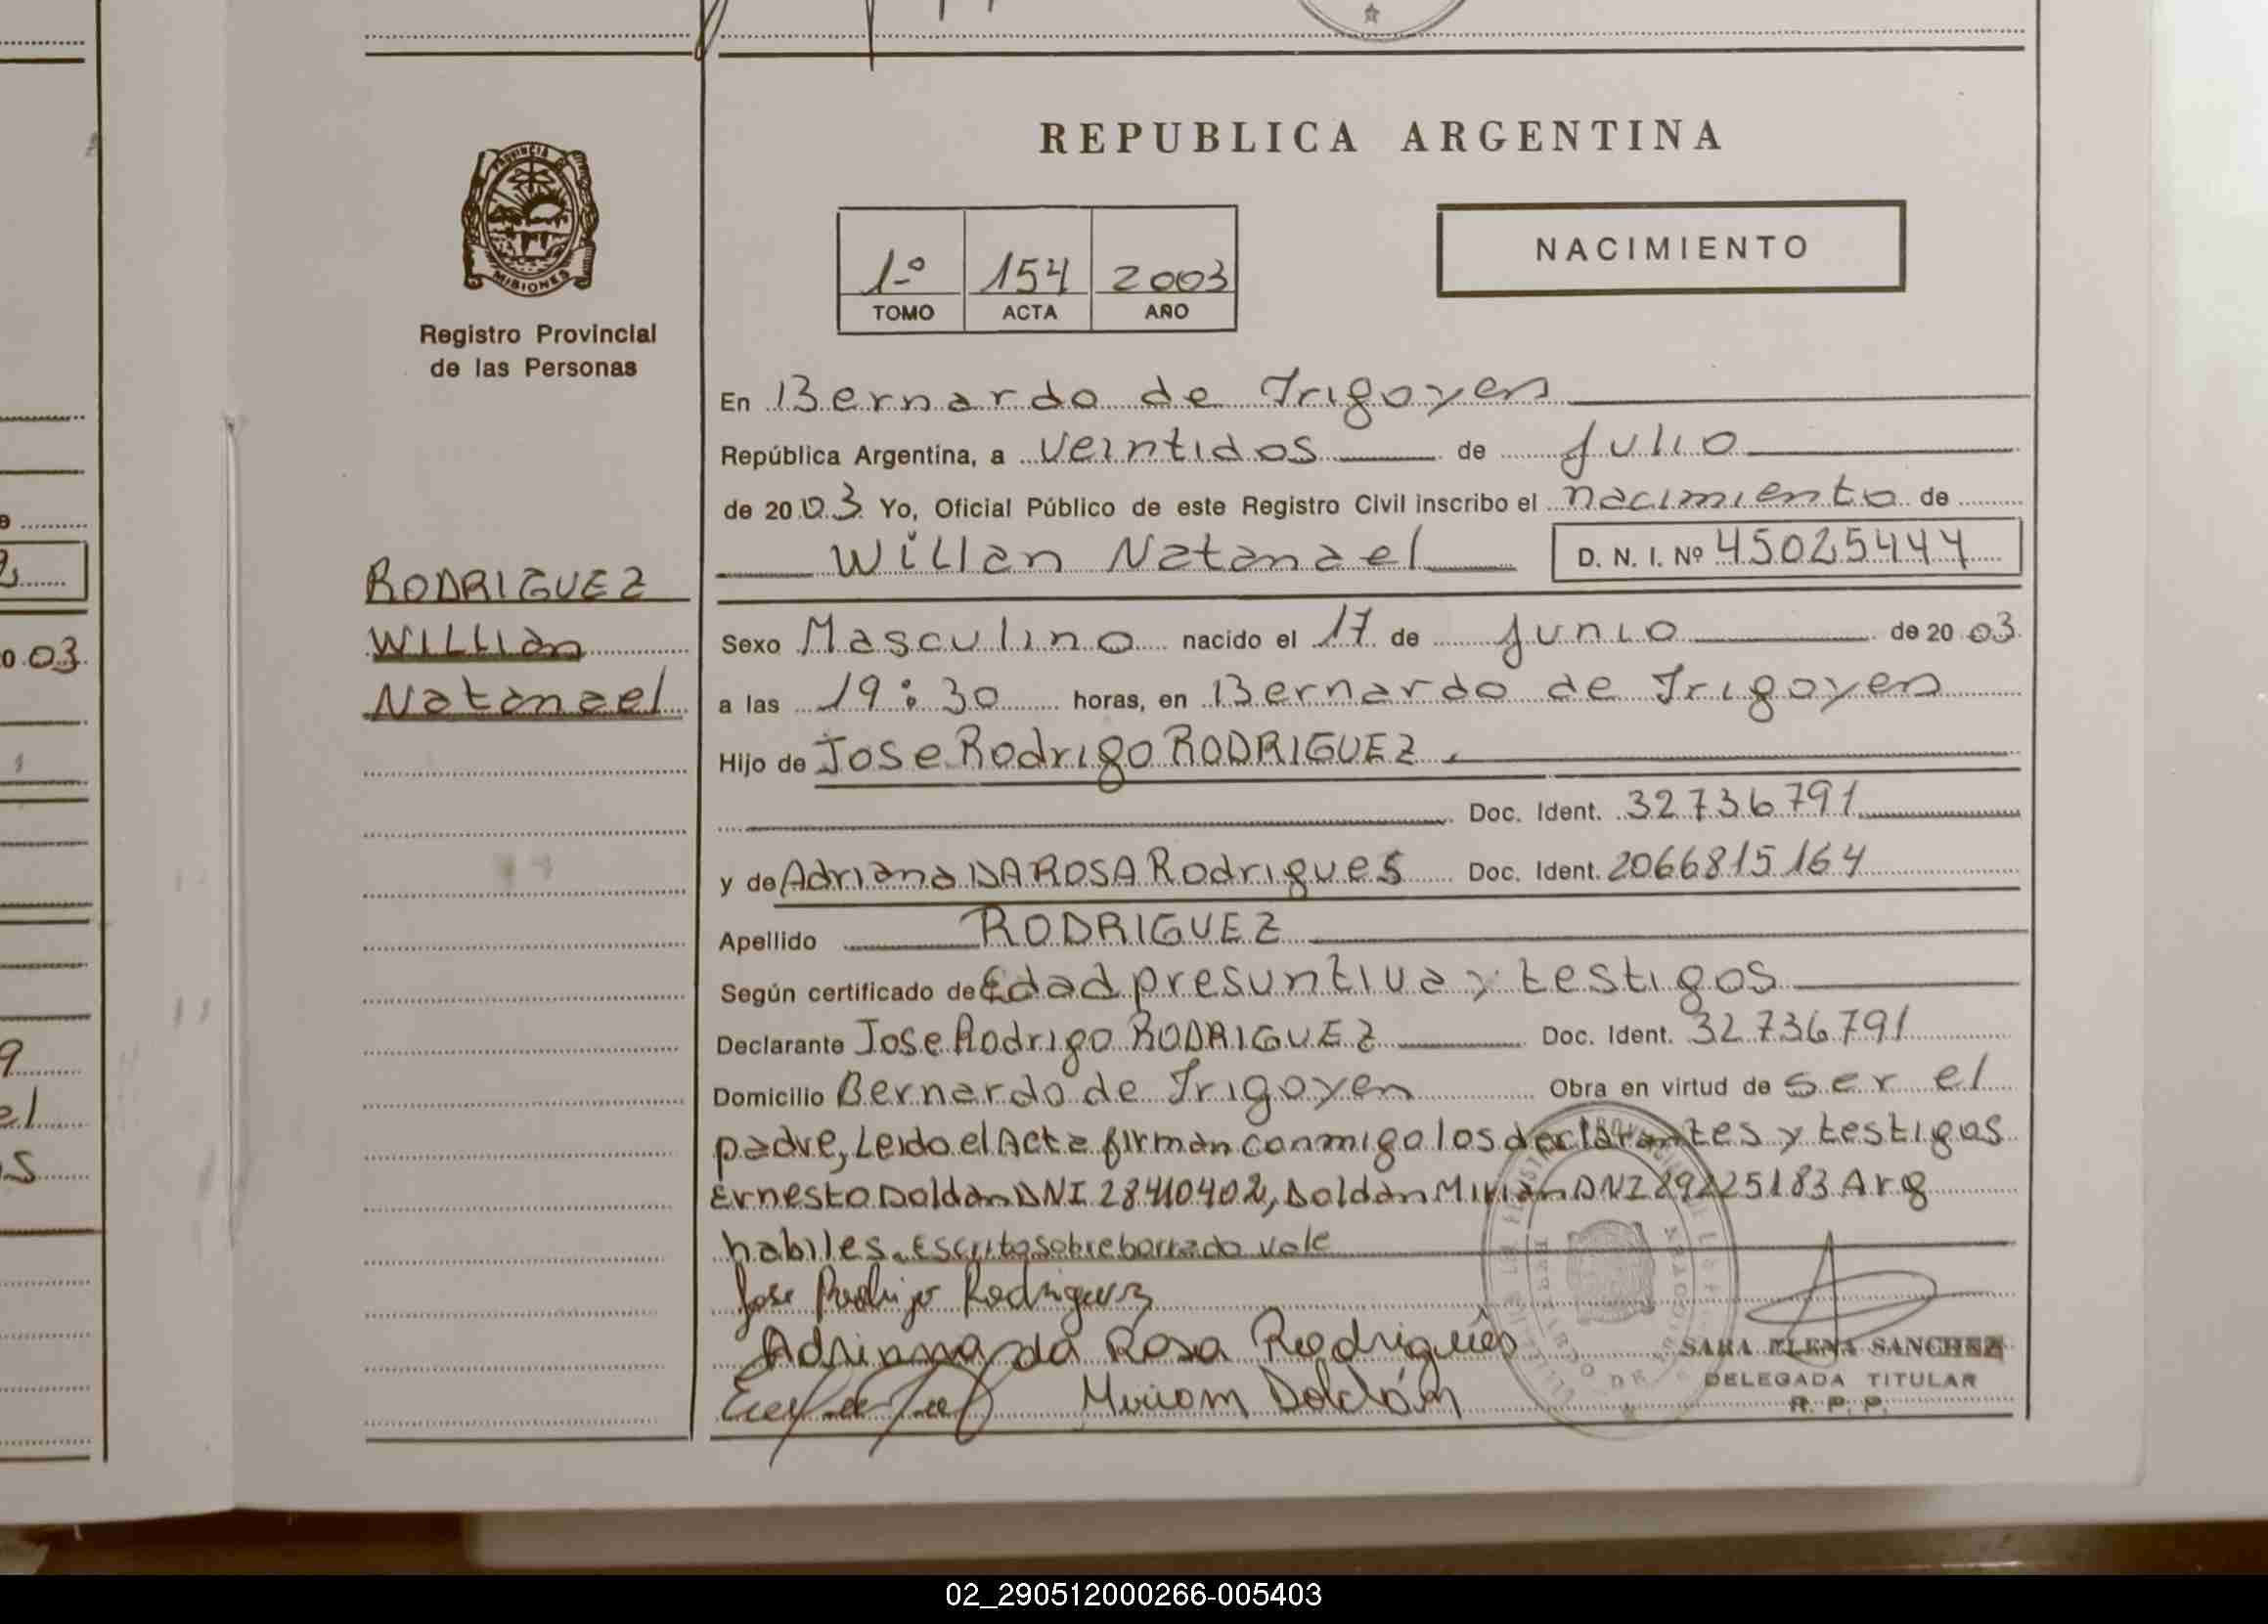 REPUBLICA ARGENTINA
PROVINCIA DE
MISIONES
Registro Provincial
de las Personas
1º 154 2003
TOMO ACTA AÑO
NACIMIENTO
En Bernardo de Irigoyen
República Argentina, a veintidos de Julio
de 2003 Yo, Oficial Público de este Registro Civil inscribo el nacimiento de
Willan Natanael D. N. I. Nº 45025444
RODRIGUEZ
WILLIan
Natanael
Sexo Masculino nacido el 17 de Junio de 2003
a las 19:30 horas, en Bernardo de Irigoyen
Hijo de Jose Rodrigo RODRIGUEZ
Doc. Ident. 32736791
y de Adriana DA ROSA Rodrigues Doc. Ident. 2066815164
Apellido RODRIGUEZ
Según certificado de Edad presuntiva y testigos
Declarante Jose Rodrigo RODRIGUEZ Doc. Ident. 32736791
Domicilio Bernardo de Irigoyen Obra en virtud de ser el
padre, Leido el Acta firman conmigo los declarantes y testigos
Ernesto Doldan DNI 28410402, Doldan Mirian DNI 29225183 Arg
habiles. Escrito sobre borrado vale
Jose Rodrigo Rodriguez
Adriana da Rosa Rodriguês
Miriam Doldán
SARA ELENA SANCHEZ
DELEGADA TITULAR
R. P. P.
02_290512000266-005403